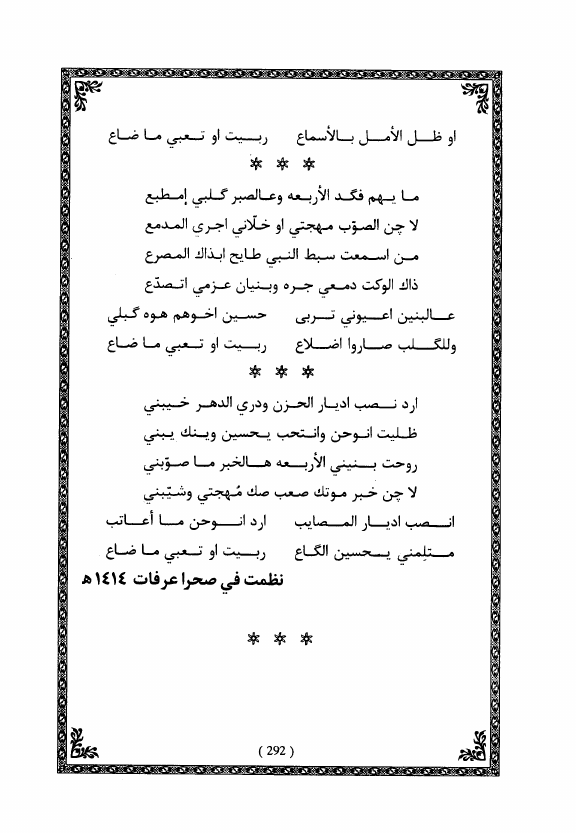 او ظل الأمل بالأسماع ربيت او تعبي ما ضاع
* * *
ما يهم فگد الأربعه وعالصبر گلبي إمطبع
لا چن الصوّب مهجتي او خلّاني اجري المدمع
من اسمعت سبط النبي طايح ابذاك المصرع
ذاك الوكت دمعي جره وبنيان عزمي اتصدّع
عالبنين اعيوني تربى حسين اخوهم هوه گبلي
وللگلب صاروا اضلاع ربيت او تعبي ما ضاع
* * *
ارد نصب اديار الحزن ودري الدهر خيبني
ظليت انوحن وانتحب يحسين وينك يبني
روحت بنيني الأربعه هالخبر ما صوّبني
لا چن خبر موتك صعب صك مُهجتي وشيّبني
انصب اديار المصايب ارد انوحن ما أعاتب
متلِمني يحسين الگاع ربيت او تعبي ما ضاع
نظمت في صحرا عرفات ١٤١٤ هـ
* * *
( 292 )